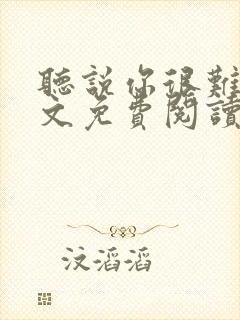 聽說你很難
文免費閱讀
汶滔滔